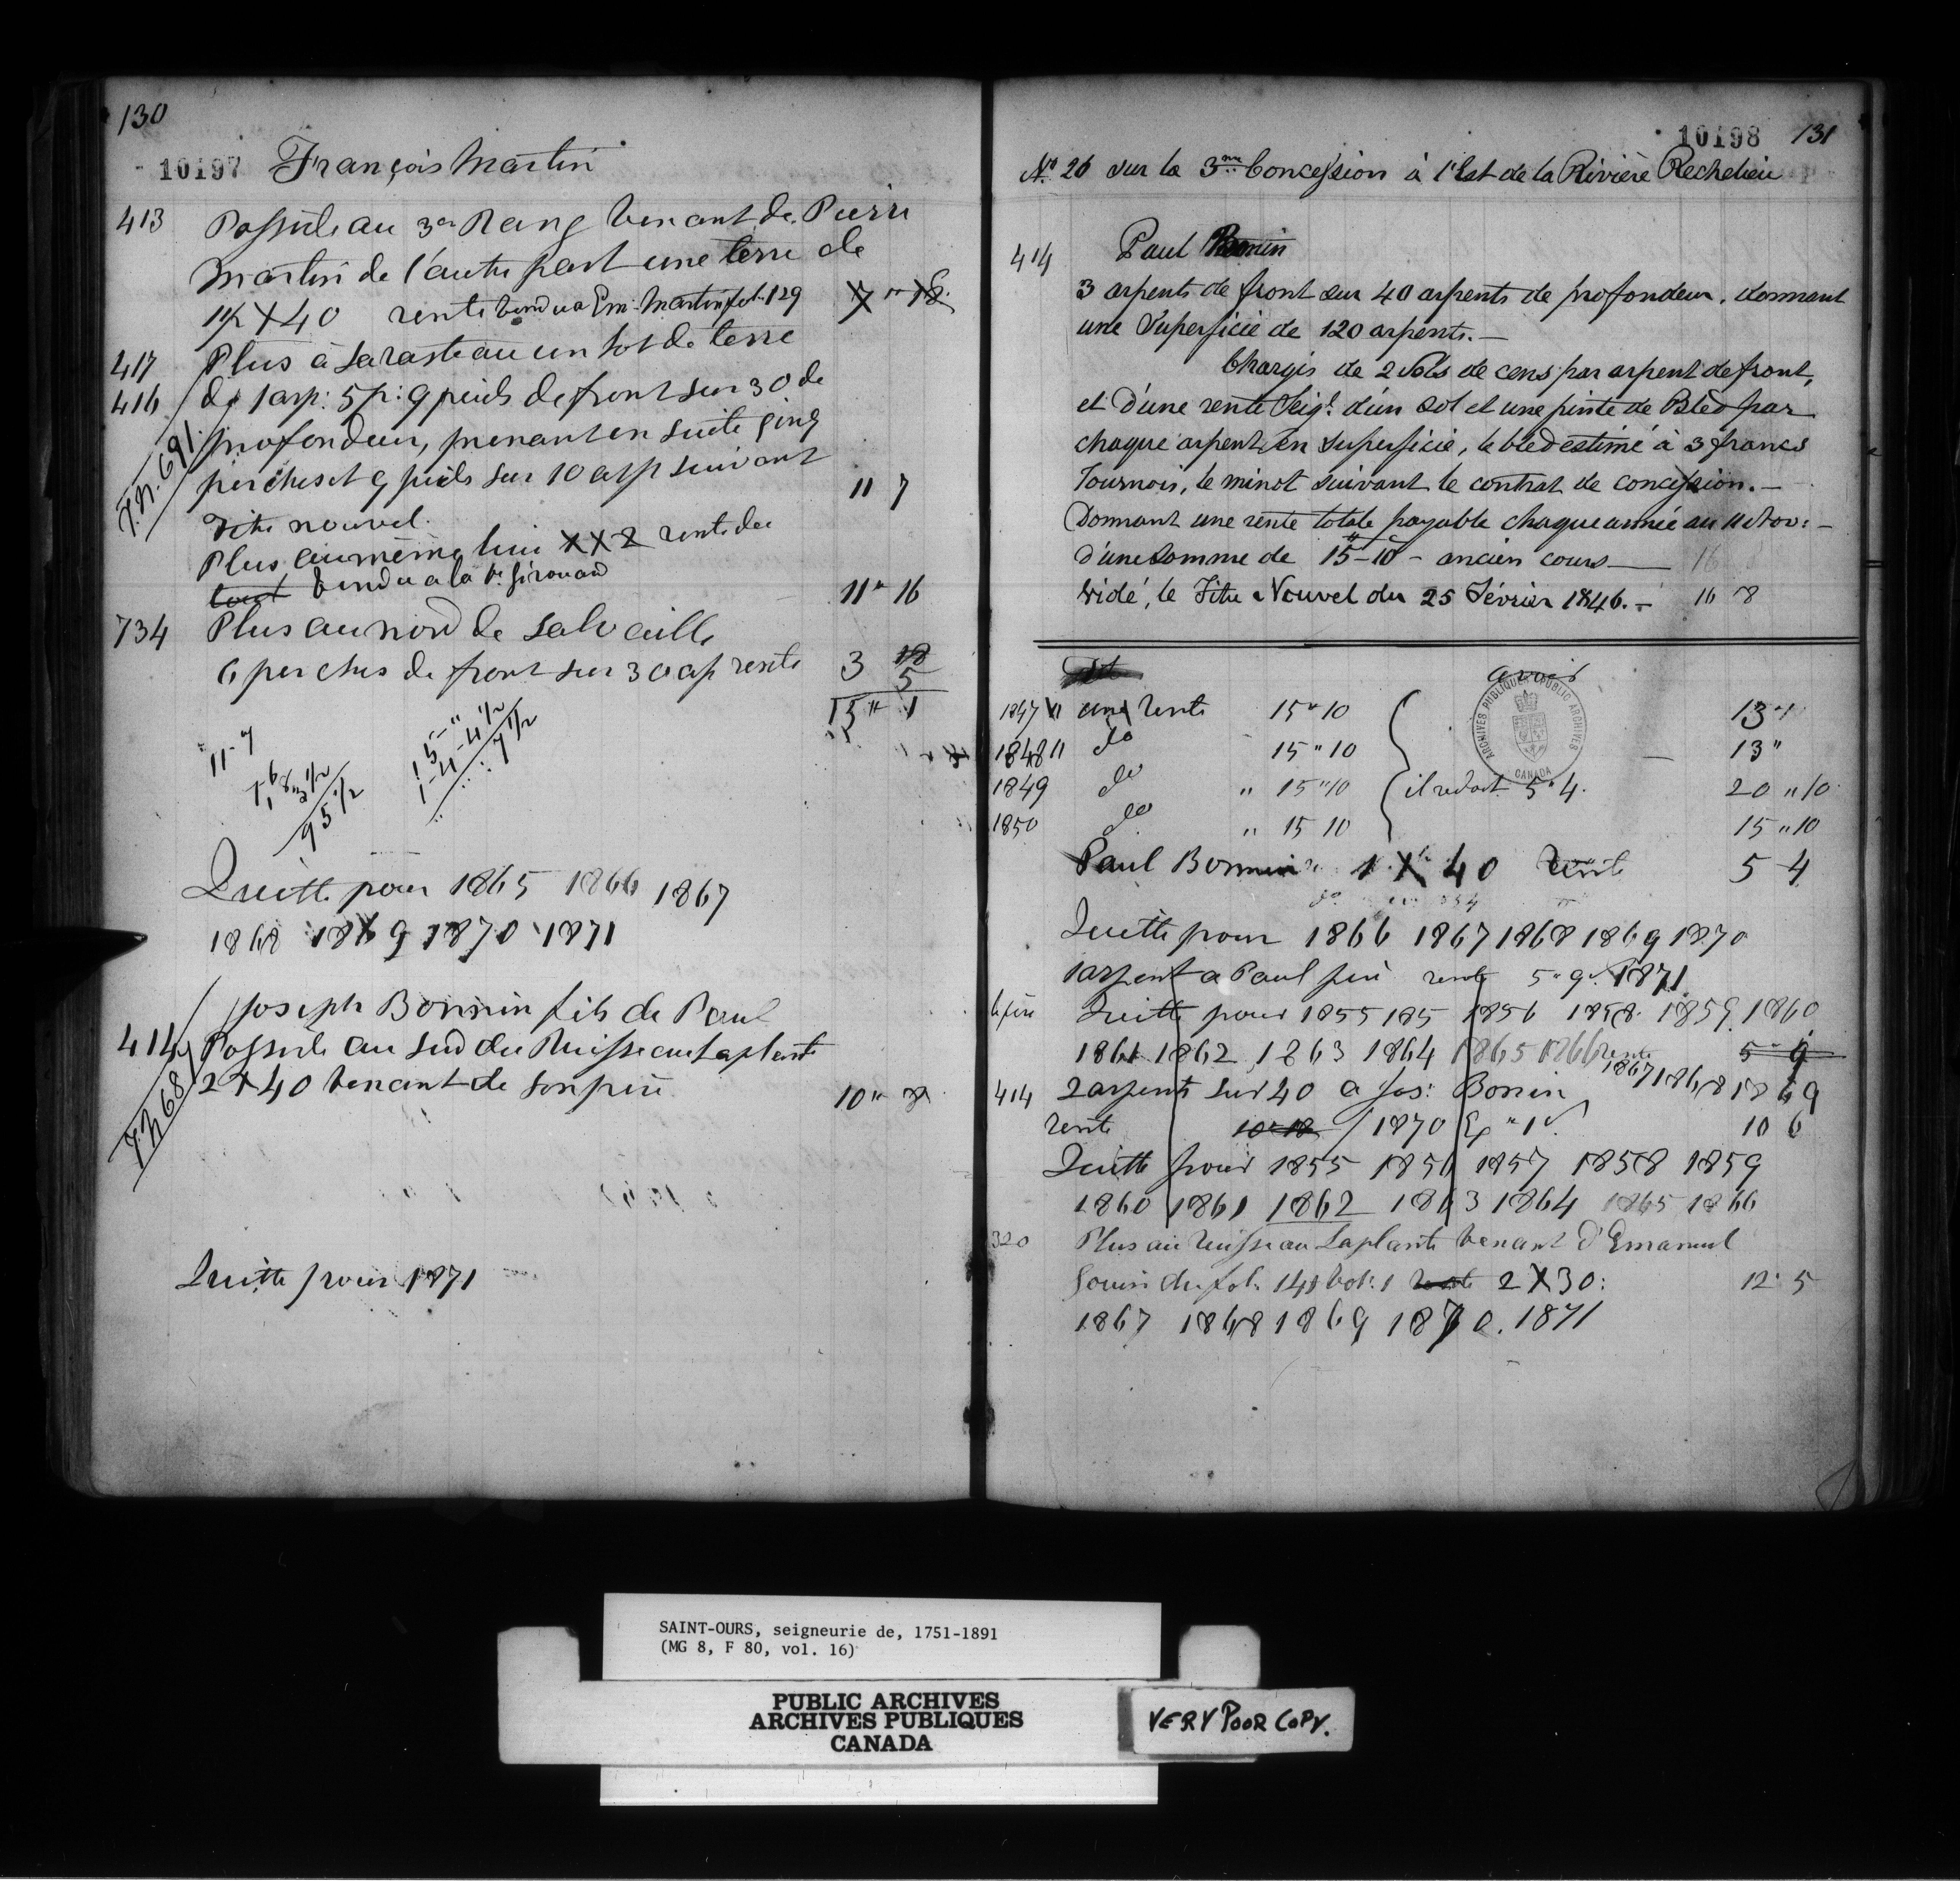 130
10197 François Martin
413 Possède au 3e Rang venant de Pierre
Martin de l'autre part une terre de
1 1/2 X 40 rente vendu a Em. Martin fol. 129 7 " 18
417 Plus à Sarasteau un lot de terre
416 de 1 arp: 5 p: 9 pieds de front sur 30 de
profondeur, prenant en suite cinq
perches et 9 pieds sur 10 arp suivant
T.N. 691
titre nouvel. 11 7
Plus au même lieu X X 2 rente de
tout vendu a la Ve Girouard 11 " 16
734 Plus au nord de Salvaille
6 perches de front sur 30 ap rente 3 18
5
15 " 1
11 - 7
95 1/2
15 - " 4 1/2
1 - 4 - 4 1/2
7 1/2
Quitte pour 1865 1866 1867
1868 1869 1870 1871
Joseph Bonnin fils de Paul
414 Possède au Sud du Ruisseau Laplante
2 X 40 venant de son père 10 " 8
T.N. 681
Quitte pour 1871
10198 131
No. 26 sur la 3me Concession à l'Est de la Rivière Rechelieu
414 Paul Bonnin
3 arpents de front sur 40 arpents de profondeur, donnant
une Superficie de 120 arpents. —
Chargés de 2 Sols de cens par arpent de front,
et d'une rente Seigl. d'un Sol et une pinte de Bled par
chaque arpent en Superficie, le bled estimé à 3 francs
Tournois, le minot suivant le contrat de concession. —
Donnant une rente totale payable chaque année au 11 Nov: —
d'une Somme de 15 - 10 - ancien cours — 16
Vidé, le Titre Nouvel du 25 Février 1846. — 16 8
avoir
1847 11 une rente 15 " 10 13 "
1848 11 do 15 " 10 13 "
1849 do " 15 " 10 il redoit 5 " 4. 20 " 10
1850 do " 15 10 15 " 10
Paul Bonnin 1 X 40 rente 5 4
Quitte pour 1866 1867 1868 1869 1870
1 arpent a Paul père rente 5 " 9 1871
le père Quitte pour 1855 185 1856 1858 1859 1860
1861 1862 1863 1864 1865 1866 rente 5 " 9
1867 1868 1869
414 2 arpents sur 40 a Jos: Bonnin
rente 10 " 18 / 1870 10 6
Quitte pour 1855 1856 1857 1858 1859
1860 1861 1862 1863 1864 1865 1866
320 Plus au Ruisseau Laplante venant d'Emanuel
Gouin du fol. 148 vol: 1 rente 2 X 30: 12 " 5
1867 1868 1869 1870. 1871
ARCHIVES PUBLIQUES PUBLIC ARCHIVES CANADA
SAINT-OURS, seigneurie de, 1751-1891
(MG 8, F 80, vol. 16)
PUBLIC ARCHIVES
ARCHIVES PUBLIQUES
CANADA
VERY POOR COPY.